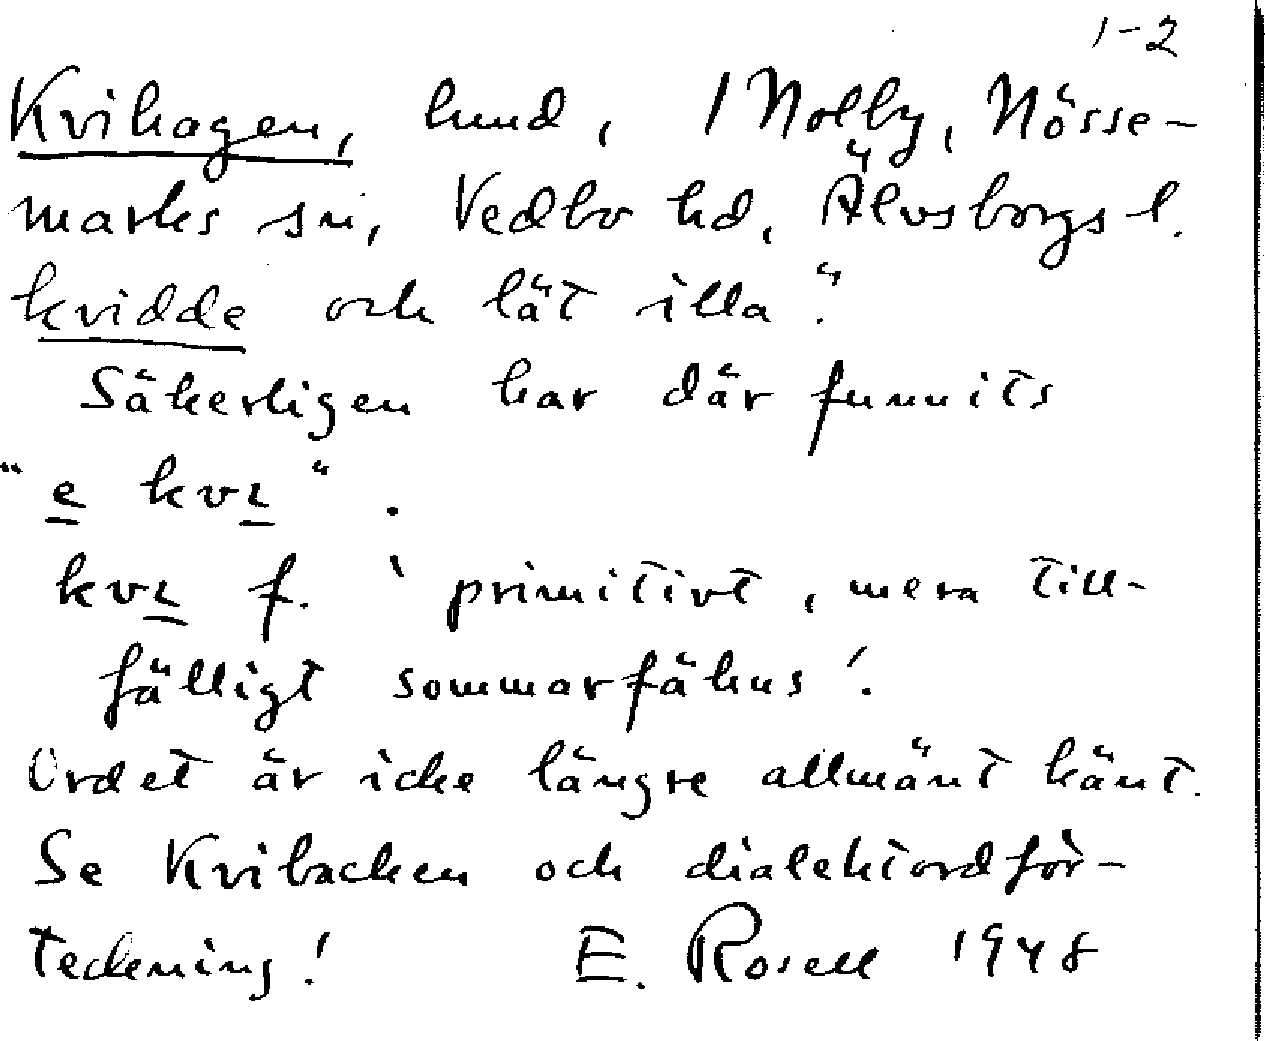 1-2
Kvihagen, lund, 1 Nolby, Nösse-
marks sn, Vedbo hd, Älvsborgs l.
kvidde och lät illa".
Säkerligen har där funnits
"e kvɩ".
kvɩ f. ‘primitivt, mera till-
fälligt sommarfähus’.
Ordet är icke längre allmänt känt.
Se Kvibacken och dialektordför-
teckning! E. Rosell 1948